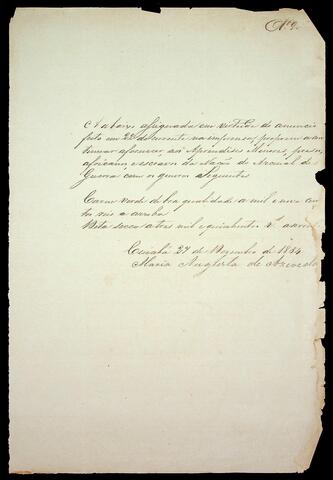 N.º 2.
A abaixo assignada em virtude do anuncio
feito em 22 do corrente na imprensa, propoem con
tinuar afornecer aos Aprendises Menores, presos,
africanos escravos da Nação do Arsenal de
Guerra com os generos seguintes
Carne verde de boa qualidade a mil e nove cen
tos reis a arroba
Dita secca a tres mil equinhentos rs a arroba
Cuiabá 27 de Dezembro de 1854
Maria Augusta de Azevedo